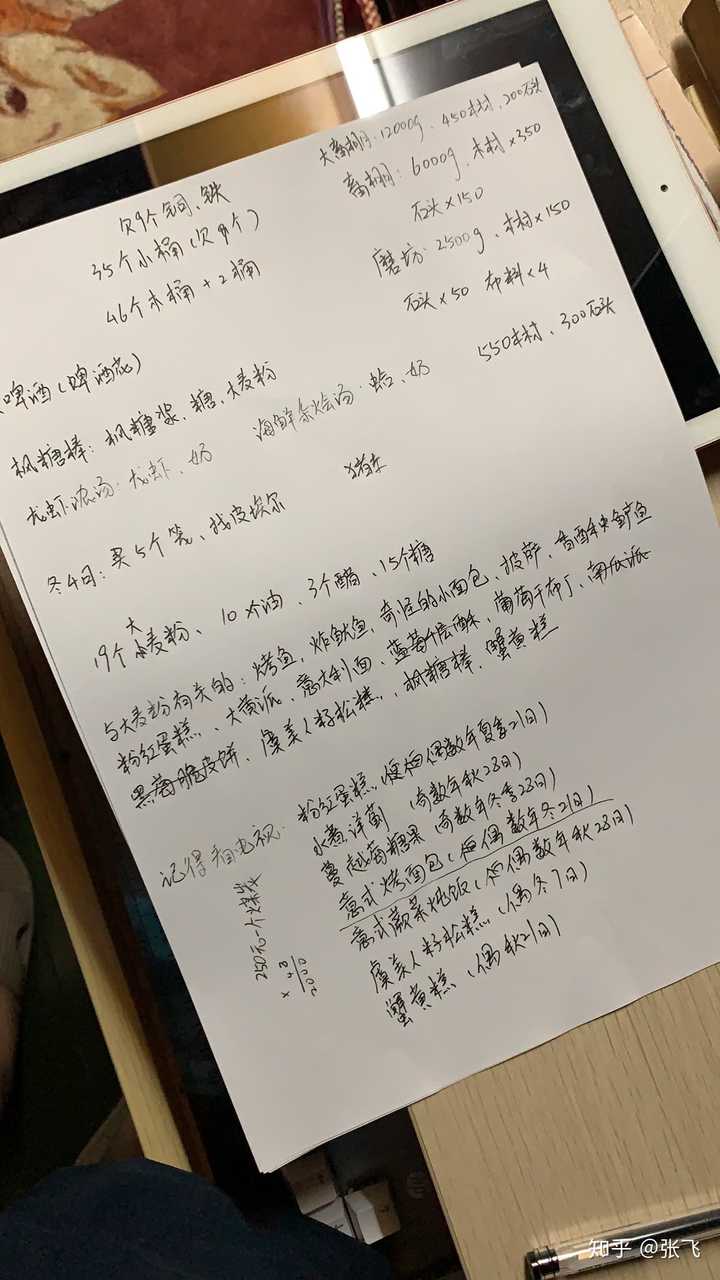 大畜棚: 12000g、450木材、200石头
畜棚: 6000g、木材×350
石头×150
磨坊: 2500g、木材×150
石头×50 布料×4
550木材、300石头
欠9个铜、铁
35个小桶(欠9个)
46个木桶+2桶
啤酒(啤酒花)
枫糖棒: 枫糖浆、糖、大麦粉
龙虾浓汤: 龙虾、奶 海鲜杂烩汤: 蛤、奶
猪车
冬4日: 买5个笼、找皮埃尔
19个大麦粉、10个油、3个醋、15个糖
与大麦粉有关的: 烤鱼、炸鱿鱼、奇怪的小面包、披萨、香酥金枪鱼
粉红蛋糕、大黄派、意大利面、蓝莓千层酥、葡萄干布丁、南瓜派
黑莓脆皮饼、虞美人籽松糕、枫糖棒、蟹黄糕
记得看电视: 粉红蛋糕(偶数年夏季21日)
水煮洋蓟(奇数年秋28日)
蔓越莓糖果(奇数年冬季28日)
意式烤面包(偶数年冬21日)
意式蕨菜炖饭(偶数年秋28日)
虞美人籽松糕(偶冬7日)
蟹黄糕(偶秋21日)
250元一个煤炭
× 8
2000
知乎 @张飞